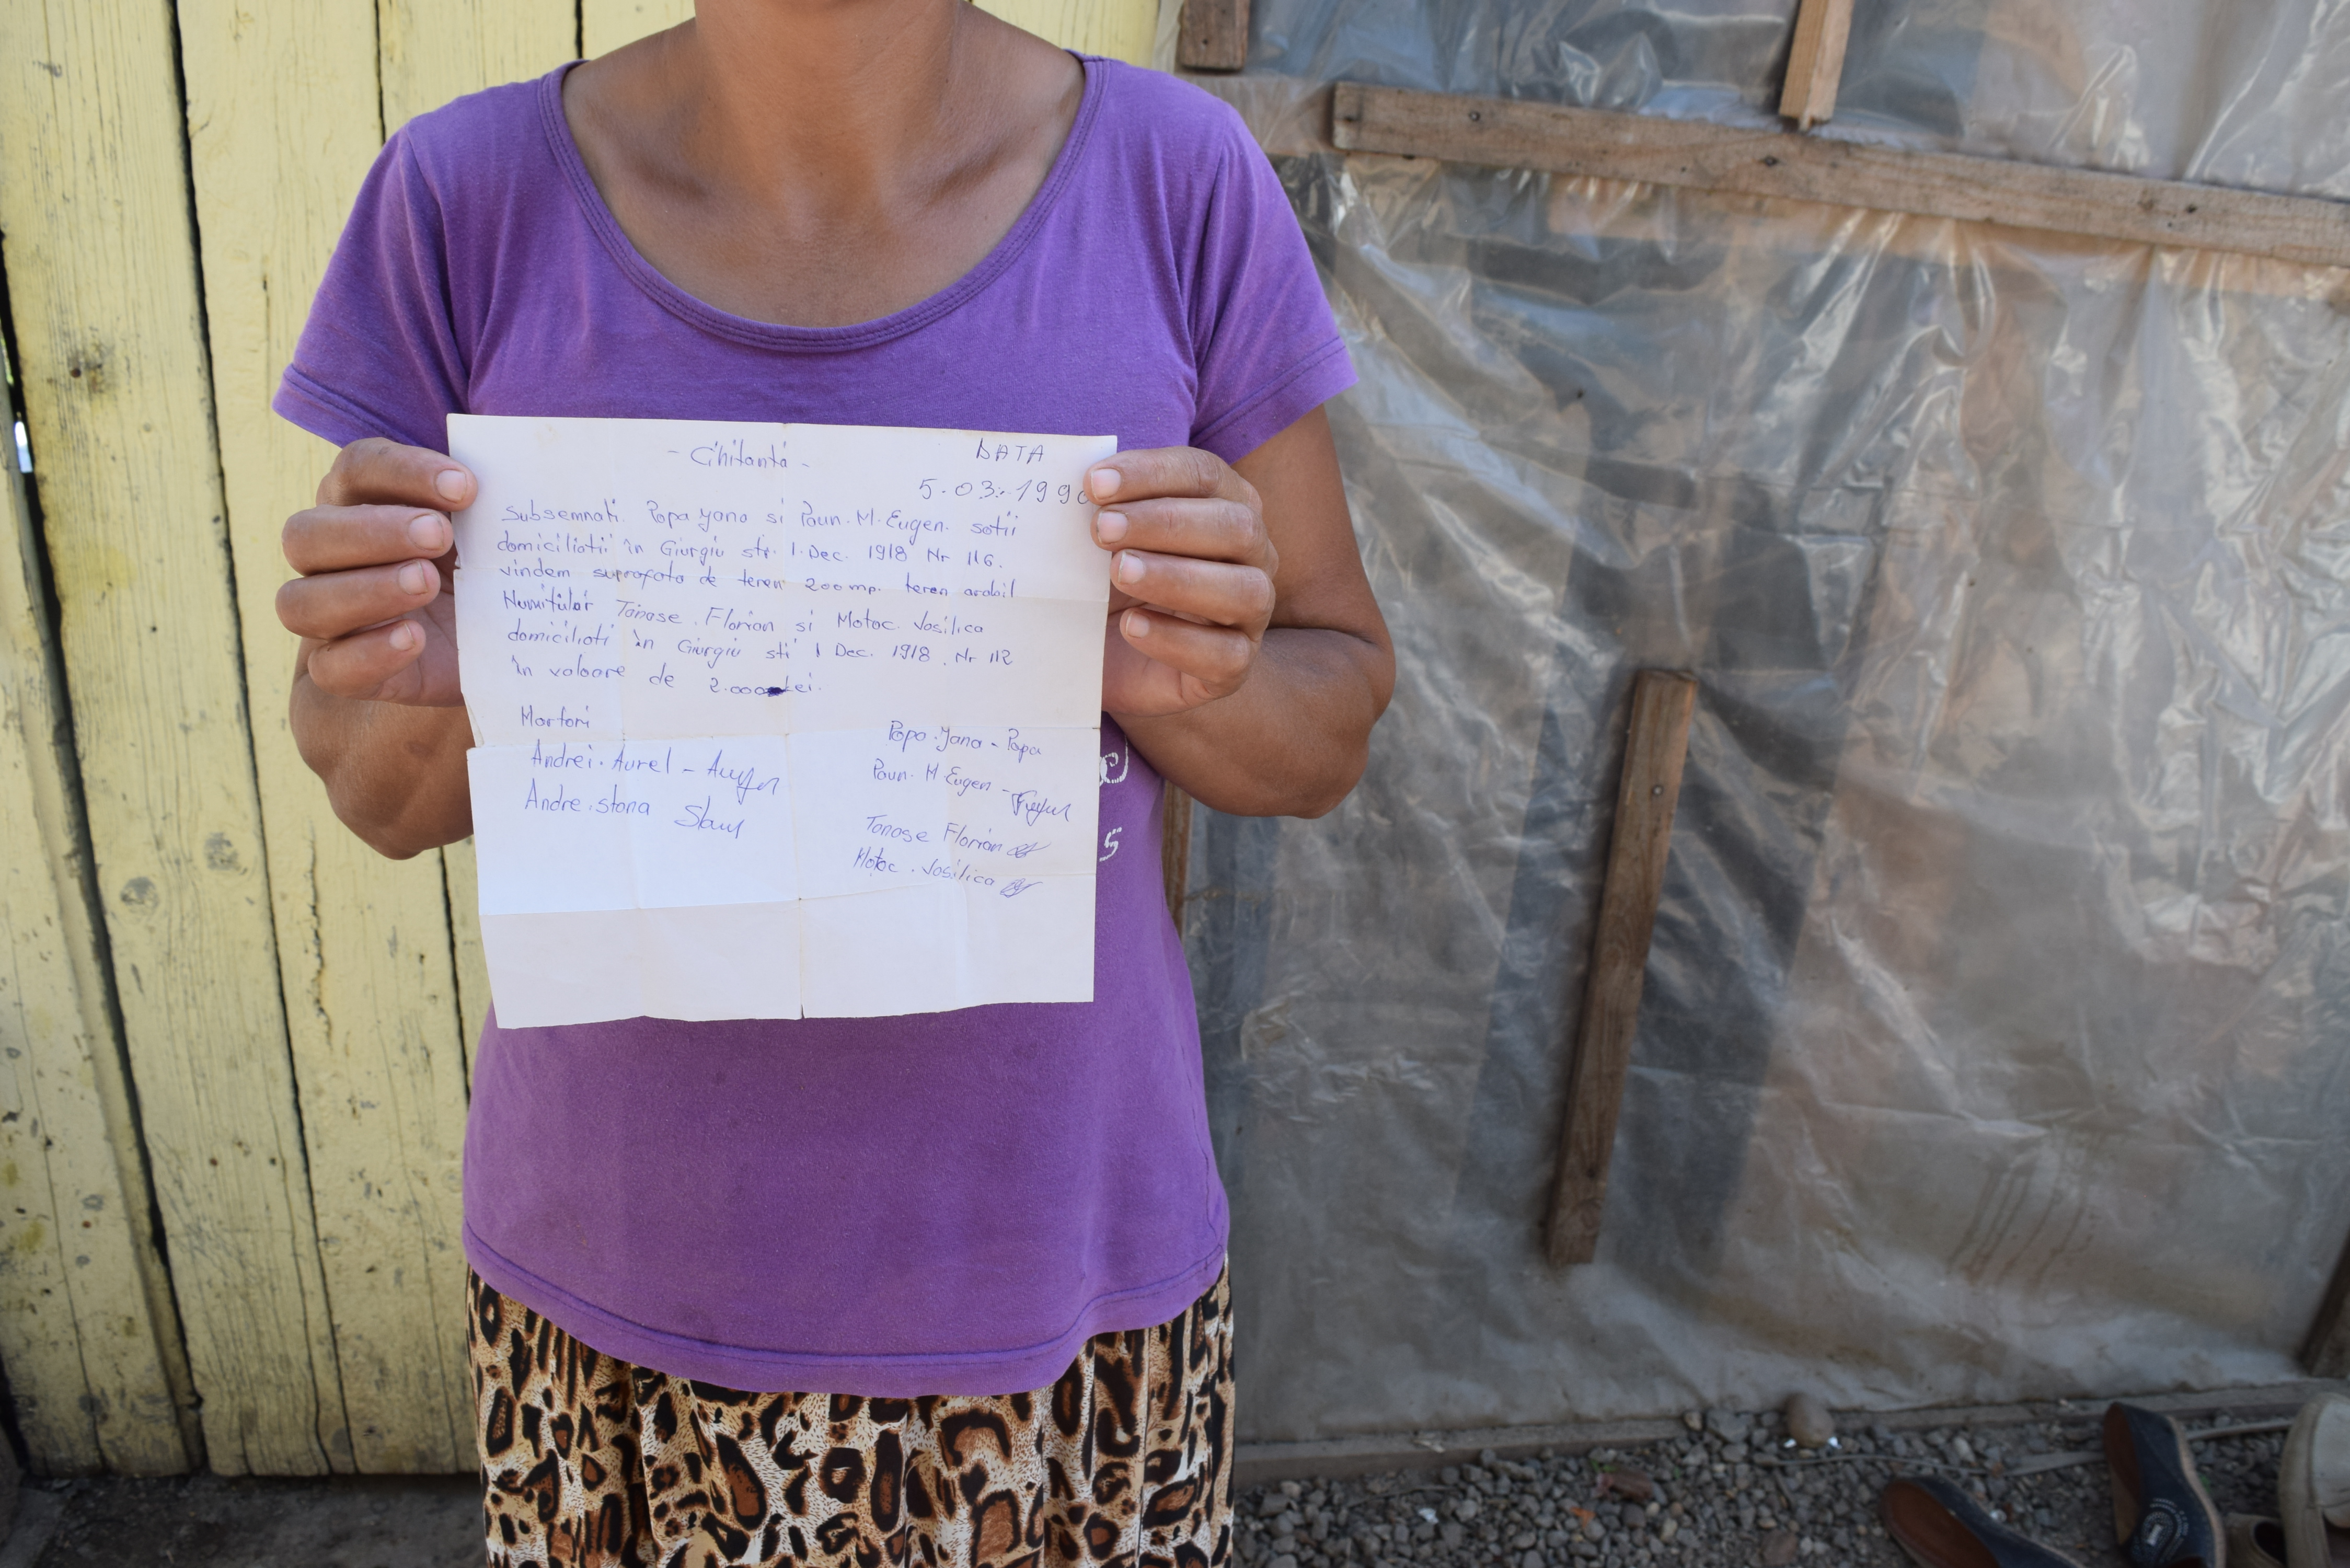 - Chitanta -
DATA
5.03.1990
Subsemnati Popa Jana si Paun. M. Eugen. sotii
domiciliati in Giurgiu str. 1. Dec. 1918 Nr 116.
vindem suprafata de teren 200 mp. teren arabil
Numitilor Tanase Florian si Motoc. Vasilica
domiciliati in Giurgiu sti 1 Dec. 1918. Nr 112
în valoare de 2.000 Lei.
Martori
Andrei. Aurel -
Andre. stana Stan
Popa. Jana - Popa
Paun. M Eugen -
Tanase Florian
Motoc. Vasilica
S